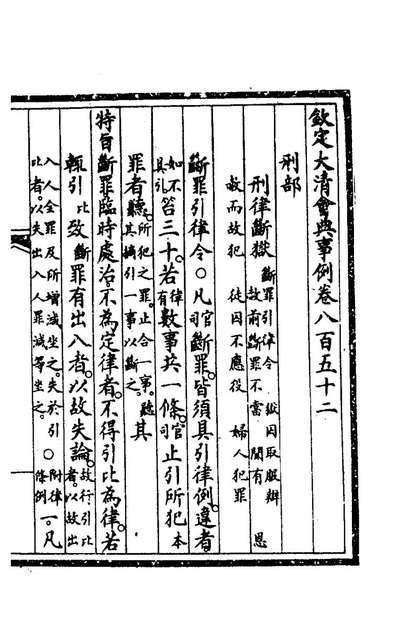 欽定大清會典事例卷八百五十二
刑部
刑律斷獄 斷罪引律令 獄囚取服辯 赦前斷罪不當 聞有 恩
赦而故犯 徒囚不應役 婦人犯罪
斷罪引律令○凡官司斷罪。皆須具引律例。違者
如不具引笞三十。若律有數事共一條。官司止引所犯本
罪者聽。所犯之罪。止合一事。聽其摘引一事以斷之。其
特旨斷罪臨時處治。不為定律者。不得引比為律。若
輒引比致斷罪有出入者。以故失論。故行引比者。以故出
入人全罪及所增減坐之。失於引比者。以失出入人罪減等坐之。○附律條例一。凡